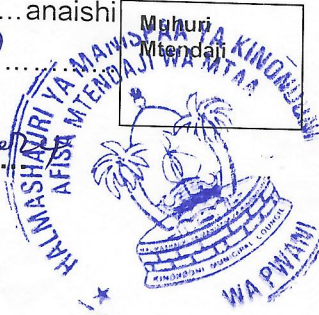 ...anaishi
Muhuri
Mtendaji
HALMASHAURI YA MANISPAA YA KINONDONI
AFISA MTENDAJI WA MTAA
KINONDONI MUNICIPAL COUNCIL
WA PWANI